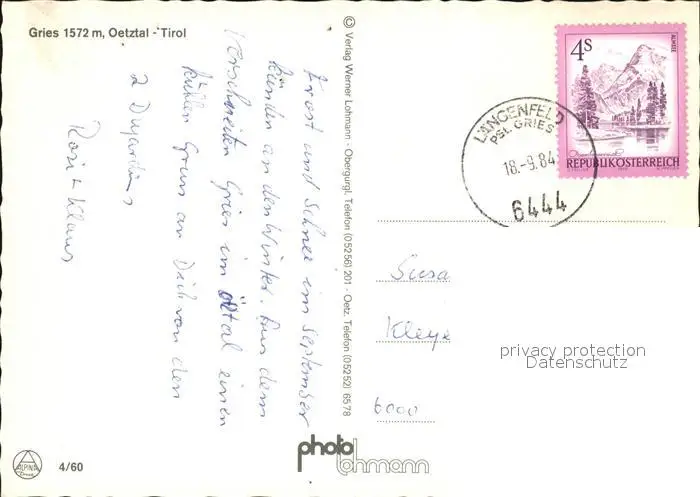 Gries 1572 m, Oetztal - Tirol
Frost und Schnee im September
künden an den Winter. Aus dem
verschneiten Gries im Ötztal einen
kühlen Gruss an Dich von den
2
Rosi + Klaus
© Verlag Werner Lohmann · Obergurgl, Telefon (05256) 201 · Oetz, Telefon (05252) 6578
4S
ALMSEE
REPUBLIK ÖSTERREICH
LÄNGENFELD
PSt. GRIES
18.-9.84
6444
Susa
Kleye
6000
privacy protection
Datenschutz
photo
lohmann
ALPINA
4/60